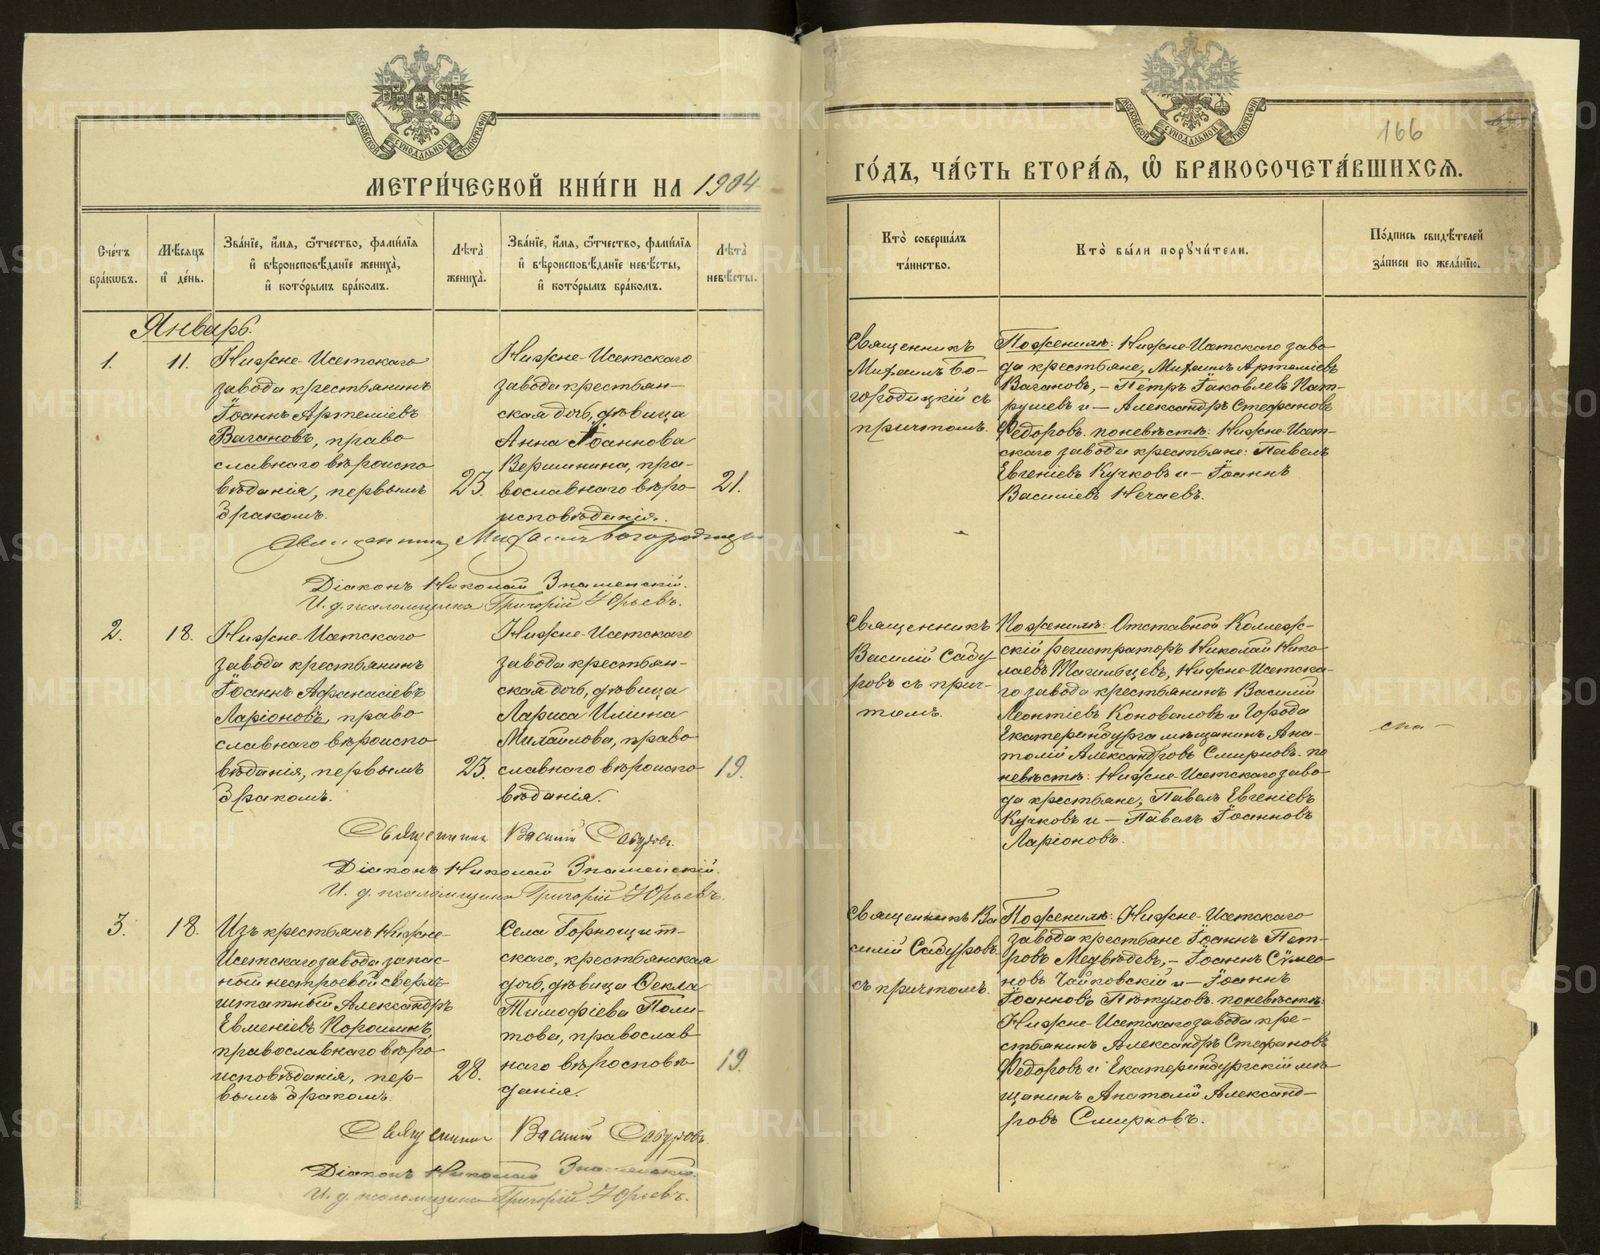 МЕТРИ́ЧЕСКОЙ КНИ́ГИ НА 1904
ГО́ДЪ, ЧА́СТЬ ВТОРА́Я, Ѽ БРАКОСОЧЕТА́ВШИХСЯ.
166
МОСКОВСКОЙ СѴНОДАЛЬНОЙ ТИПОГРАФІИ
МОСКОВСКОЙ СѴНОДАЛЬНОЙ ТИПОГРАФІИ
Сче́тъ бра́кѡвъ.
Мѣ́сяцъ и҆ де́нь.
Зва́нїе, и҆́мя, ѻ҆́тчество, фами́лїя и҆ вѣроисповѣ́данїе жениха̀, и҆ кото́рымъ бра́комъ.
Лѣ́та жениха̀.
Зва́нїе, и҆́мя, ѻ҆́тчество, фами́лїя и҆ вѣроисповѣ́данїе невѣ́сты, и҆ кото́рымъ бра́комъ.
Лѣ́та невѣ́сты.
Кто̀ соверша́лъ та́инство.
Кто̀ бы́ли порꙋчи́тели.
По́дпись свидѣ́телей за́писи по жела́нїю.
Январь.
1.
11.
Нижне-Исетскаго
завода крестьянинъ
Іоаннъ Артеміевъ
Вагановъ, право
славнаго вѣроиспо
вѣданія, первымъ
бракомъ.
23.
Нижне-Исетскаго
завода крестьян-
ская дочь, дѣвица
Анна Іоаннова
Вершинина, пра-
вославнаго вѣро
исповѣданія.
21.
Священникъ
Михаилъ Бо-
городицкій съ
причтомъ.
По женихѣ: Нижне-Исетскаго заво
да крестьяне, Михаилъ Артеміевъ
Вагановъ, – Петръ Іаковлевъ Пат-
рушевъ и – Александръ Стефановъ
Ѳедоровъ. по невѣстѣ: Нижне-Исет-
скаго завода крестьяне: Павелъ
Евгеніевъ Кучковъ и – Іоаннъ
Василіевъ Нечаевъ.
Священникъ Михаилъ Богородицкій
Діаконъ Николай Знаменскій.
И. д. псаломщика Григорій Юрьевъ.
2.
18.
Нижне-Исетскаго
завода крестьянинъ
Іоаннъ Афанасіевъ
Ларіоновъ, право
славнаго вѣроиспо
вѣданія, первымъ
бракомъ.
23.
Нижне-Исетскаго
завода крестьян-
ская дочь, дѣвица
Лариса Иліина
Михайлова, право
славнаго вѣроиспо
вѣданія.
19.
Священникъ
Василій Сабу
ровъ съ прич-
томъ.
По женихѣ: Отставной Коллеж-
скій регистраторъ Николай Нико
лаевъ Тагильцевъ, Нижне-Исетска-
го завода крестьянинъ Василій
Леонтіевъ Коноваловъ и Города
Екатеринбурга мѣщанинъ Ана-
толій Александровъ Смирновъ. по
невѣстѣ: Нижне-Исетскаго заво-
да крестьяне, Павелъ Евгеніевъ
Кучковъ и – Павелъ Іоанновъ
Ларіоновъ.
Священникъ Василій Сабуровъ.
Діаконъ Николай Знаменскій.
И. д. псаломщика Григорій Юрьевъ.
3.
18.
Изъ крестьянъ Нижне-
Исетскаго завода запас-
ный нестроевой сверхъ-
штатный Александръ
Евменіевъ Порошинъ,
православнаго вѣро
исповѣданія, пер-
вымъ бракомъ.
28.
Села Горнощит-
скаго, крестьянская
дочь, дѣвица Ѳекла
Тимофіева Поли-
това, православ
наго вѣроисповѣ
данія.
19.
Священникъ Ва
силій Сабуровъ
съ причтомъ.
По женихѣ: Нижне-Исетскаго
завода крестьяне Іоаннъ Пет-
ровъ Медвѣдевъ, – Іоаннъ Сѵмео
новъ Чайковскій и – Іоаннъ
Іоанновъ Пѣтуховъ. по невѣстѣ:
Нижне-Исетскаго завода кре-
стьянинъ Александръ Стефановъ
Ѳедоровъ и Екатеринбургскій мѣ-
щанинъ Анатолій Александ-
ровъ Смирновъ.
Священникъ Василій Сабуровъ
Діаконъ Николай Знаменскій.
И. д. псаломщика Григорій Юрьевъ.
METRIKI.GASO-URAL.RU